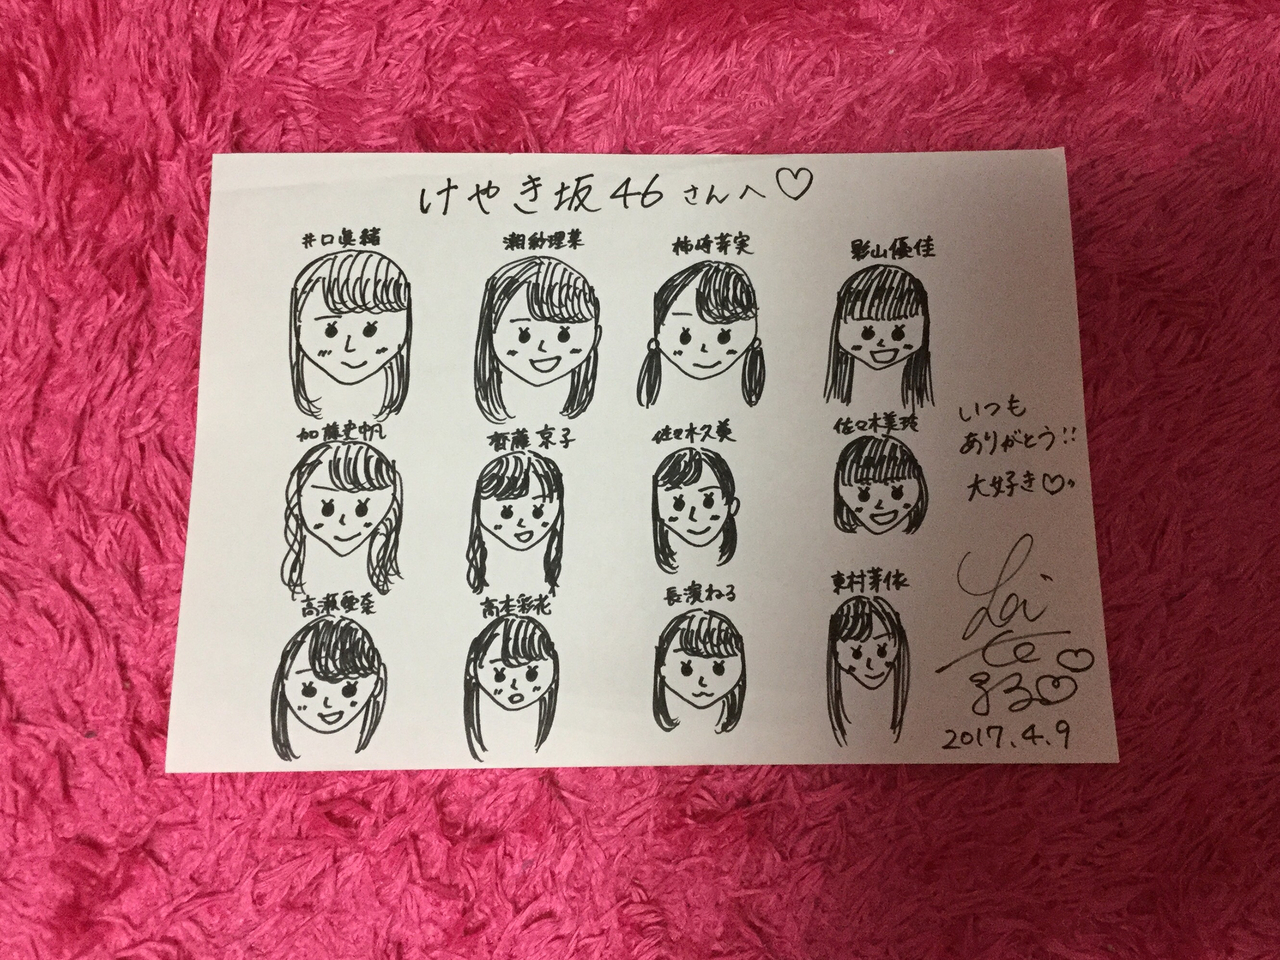 けやき坂46さんへ♡
井口眞緒 潮紗理菜 柿崎芽実 影山優佳
加藤史帆 齊藤京子 佐々木久美 佐々木美玲
高瀬愛奈 高本彩花 長濱ねる 東村芽依
いつも
ありがとう!!
大好き♡
2017.4.9